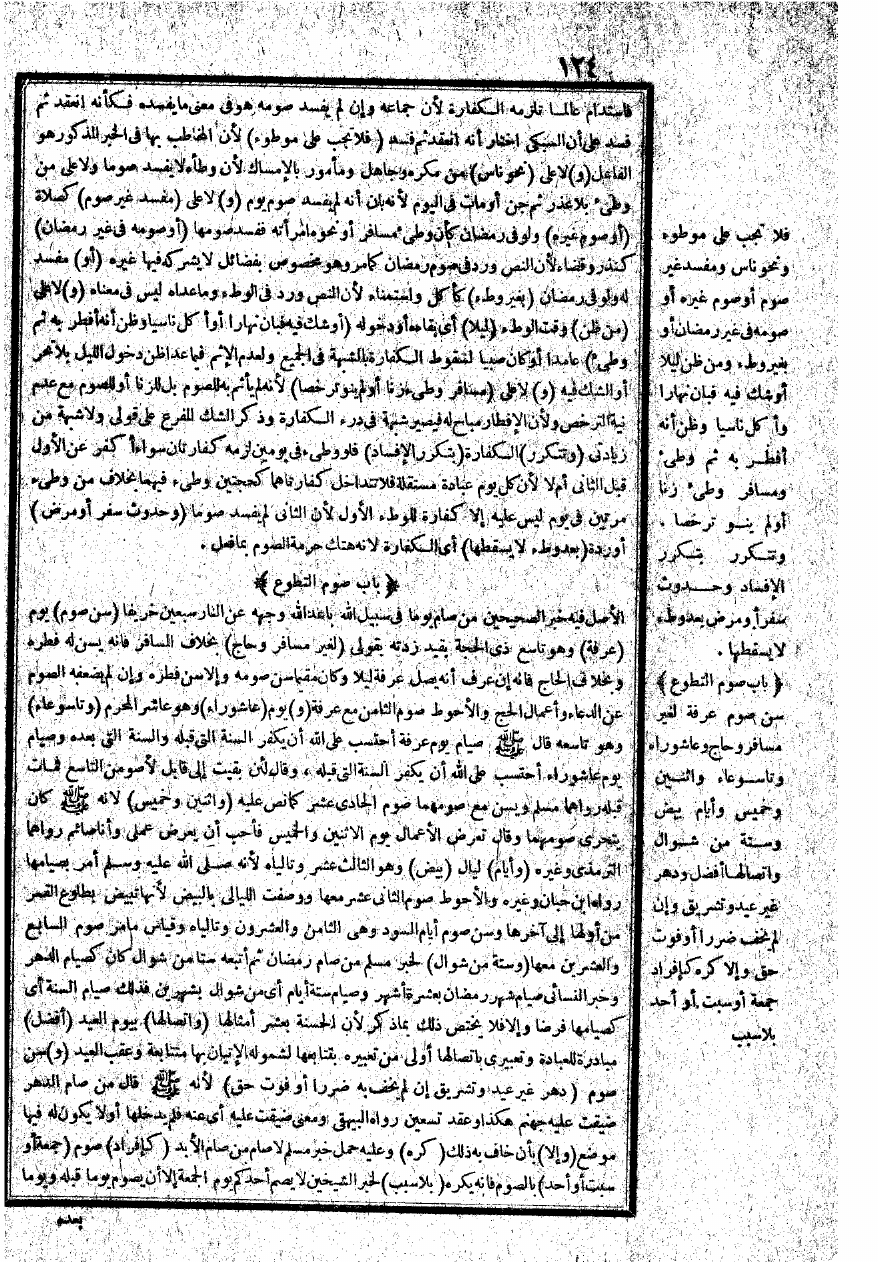 ١٢٤
فاستدام عالما تلزمه الكفارة لأن جماعه وإن لم يفسد صومه هو فى معنى ما يفسده فكأنه انعقد ثم
فسد على أن السبكى اختار أنه انعقد ثم فسد (فلا تجب على موطوء) لأن المخاطب بها فى الخبر المذكور هو
الفاعل (و) لا على (نحو ناس) من مكره وجاهل ومأمور بالإمساك لأن وطأه لا يفسد صوما ولا على من
وطئ بلا عذر ثم جن أو مات فى اليوم لأنه بان أنه لم يفسد صوم يوم (و) لا على (مفسد غير صوم) كصلاة
(أو صوم غيره) ولو فى رمضان كأن وطئ مسافر أو نحوه امرأته ففسد صومها (أو صومه فى غير رمضان)
كنذر وقضاء لأن النص ورد فى صوم رمضان كما مر وهو مخصوص بفضائل لا يشركه فيها غيره (أو) مفسد
له ولو فى رمضان (بغير وطء) كأكل واستمناء لأن النص ورد فى الوطء وما عداه ليس فى معناه (و) لا على
(من ظن) وقت الوطء (ليلا) أى بقاءه أو دخوله (أو شك فيه فبان نهارا أو أكل ناسيا وظن أنه أفطر به ثم
وطئ) عامدا أو كان صبيا لسقوط الكفارة بالشبهة فى الجميع ولعدم الإثم فيما عدا ظن دخول الليل بلا تحر
أو الشك فيه (و) لا على (مسافر وطئ زنا أو لم ينو ترخصا) لأنه لم يأثم به للصوم بل للزنا أو للصوم مع عدم
نية الترخص ولأن الإفطار مباح له فيصير شبهة فى درء الكفارة وذكر الشك للفرع على قولى ولا شبهة من
زيادتى (وتتكرر) الكفارة (بتكرر الإفساد) فلو وطئ فى يومين لزمه كفارتان سواء أكفر عن الأول
قبل الثانى أم لا لأن كل يوم عبادة مستقلة فلا تتداخل كفارتاهما كحجتين وطئ فيهما بخلاف من وطئ
مرتين فى يوم ليس عليه إلا كفارة للوطء الأول لأن الثانى لم يفسد صوما (وحدوث سفر أو مرض)
أو ردة (بعد وطء لا يسقطها) أى الكفارة لأنه هتك حرمة الصوم بما فعل.
﴿باب صوم التطوع﴾
الأصل فيه خبر الصحيحين من صام يوما فى سبيل الله باعد الله وجهه عن النار سبعين خريفا (سن صوم) يوم
(عرفة) وهو تاسع ذى الحجة بقيد زدته بقولى (لغير مسافر وحاج) بخلاف المسافر فانه يسن له فطره
وبخلاف الحاج فانه إن عرف أنه يصل عرفة ليلا وكان مقيما سن صومه وإلا سن فطره وإن لم يضعفه الصوم
عن الدعاء وأعمال الحج والأحوط صوم الثامن مع عرفة (و) يوم (عاشوراء) وهو عاشر المحرم (وتاسوعاء)
وهو تاسعه قال ﷺ صيام يوم عرفة أحتسب على الله أن يكفر السنة التى قبله والسنة التى بعده وصيام
يوم عاشوراء أحتسب على الله أن يكفر السنة التى قبله، وقال لئن بقيت إلى قابل لأصومن التاسع فمات
قبله رواهما مسلم ويسن مع صومهما صوم الحادى عشر كما نص عليه (واثنين وخميس) لأنه ﷺ كان
يتحرى صومهما وقال تعرض الأعمال يوم الاثنين والخميس فأحب أن يعرض عملى وأنا صائم رواهما
الترمذى وغيره (وأيام) ليال (بيض) وهو الثالث عشر وتالياه لأنه صلى الله عليه وسلم أمر بصيامها
رواه ابن حبان وغيره والأحوط صوم الثانى عشر معها ووصفت الليالى بالبيض لأنها تبيض بطلوع القمر
من أولها إلى آخرها وسن صوم أيام السود وهى الثامن والعشرون وتالياه وقياس ما مر صوم السابع
والعشرين معها (وستة من شوال) لخبر مسلم من صام رمضان ثم أتبعه ستا من شوال كان كصيام الدهر
وخبر النسائى صيام شهر رمضان بعشرة أشهر وصيام ستة أيام أى من شوال بشهرين فذلك صيام السنة أى
كصيامها فرضا وإلا فلا يختص ذلك بما ذكر لأن الحسنة بعشر أمثالها (واتصالها) بيوم العيد (أفضل)
مبادرة للعبادة وتعبيرى باتصالها أولى من تعبيره بتتابعها لشموله الإتيان بها متتابعة وعقب العيد (و) سن
صوم (دهر غير عيد وتشريق إن لم يخف به ضررا أو فوت حق) لأنه ﷺ قال من صام الدهر
ضيقت عليه جهنم هكذا وعقد تسعين رواه البيهقى ومعنى ضيقت عليه أى عنه فلم يدخلها أو لا يكون له فيها
موضع (وإلا) بأن خاف به ذلك (كره) وعليه حمل خبر مسلم لا صام من صام الأبد (كإفراد) صوم (جمعة أو
سبت أو أحد) بالصوم فانه يكره (بلا سبب) لخبر الشيخين لا يصم أحدكم يوم الجمعة إلا أن يصوم يوما قبله ويوما
بعده
فلا تجب على موطوء
ونحو ناس ومفسد غير
صوم أو صوم غيره أو
صومه فى غير رمضان أو
بغير وطء ومن ظن ليلا
أو شك فيه فبان نهارا
وأكل ناسيا وظن أنه
أفطر به ثم وطئ
ومسافر وطئ زنا
أو لم ينو ترخصا.
وتتكرر بتكرر
الإفساد وحدوث
سفر أو مرض بعد وطء
لا يسقطها.
﴿باب صوم التطوع﴾
سن صوم عرفة لغير
مسافر وحاج وعاشوراء
وتاسوعاء واثنين
وخميس وأيام بيض
وستة من شوال
واتصالها أفضل ودهر
غير عيد وتشريق وإن
لم يخف ضررا أو فوت
حق وإلا كره كإفراد
جمعة أو سبت أو أحد
بلا سبب